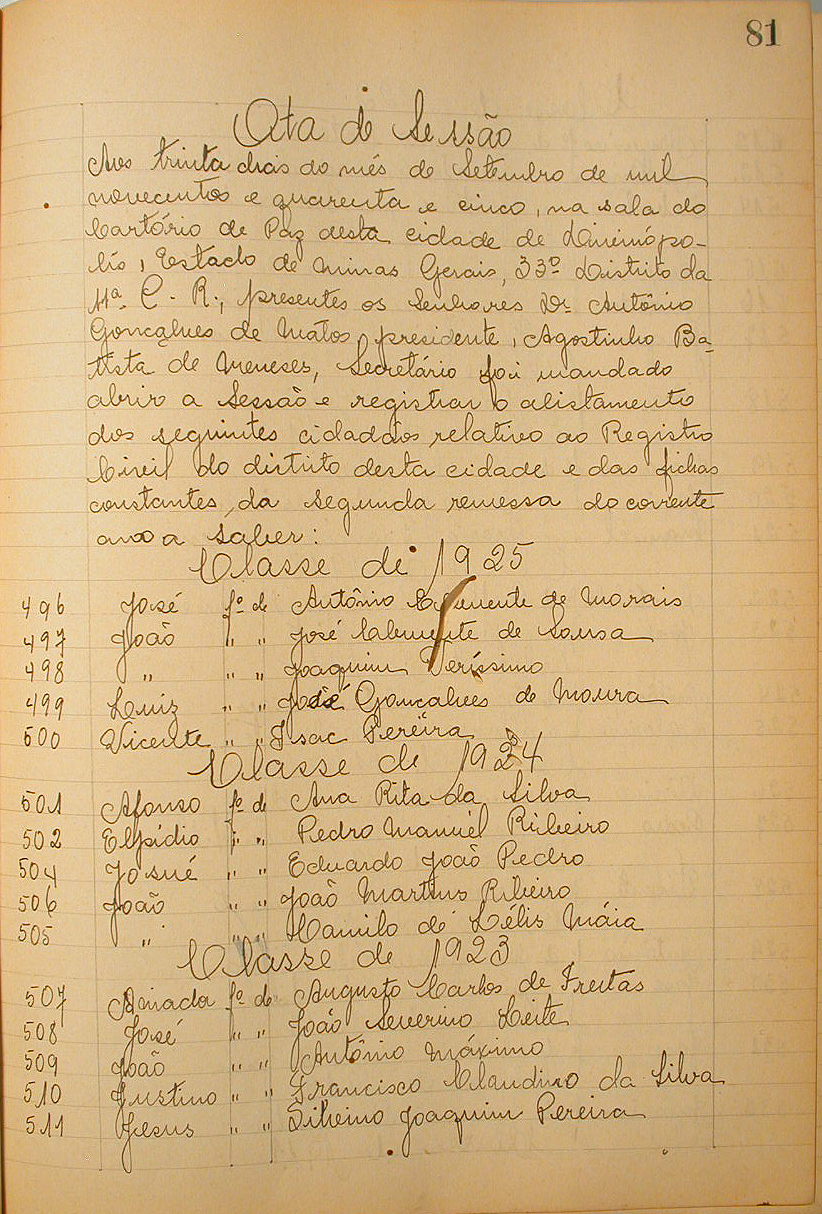 81
Ata de Sessão
Aos trinta dias do mês de Setembro de mil
novecentos e quarenta e cinco, na sala do
Cartório de Paz desta cidade de Divinópo-
lis, Estado de Minas Gerais, 33º Distrito da
11ª C. R., presentes os Senhores Dr. Antônio
Gonçalves de Matos, presidente, Agostinho Ba-
tista de Meneses, Secretário foi mandado
abrir a Sessão e registrar o alistamento
dos seguintes cidadãos relativo ao Registro
Civil do distrito desta cidade e das fichas
constantes da segunda remessa do corrente
ano a saber:
Classe de 1925
496 José fº de Antônio Clemente de Morais
497 João " " José Clemente de Sousa
498 " " " Joaquim Veríssimo
499 Luiz " " José Gonçalves de Moura
500 Vicente " " Isac Pereira
Classe de 1924
501 Afonso fº de Ana Rita da Silva
502 Elpídio " " Pedro Manuel Ribeiro
504 Josué " " Eduardo João Pedro
506 João " " João Martins Ribeiro
505 " " " Camilo de Lélis Máia
Classe de 1923
507 fº de Augusto Carlos de Freitas
508 José " " João Severino Leite
509 João " " Antônio Máximo
510 Justino " " Francisco Claudino da Silva
511 Jesus " " Joaquim Pereira